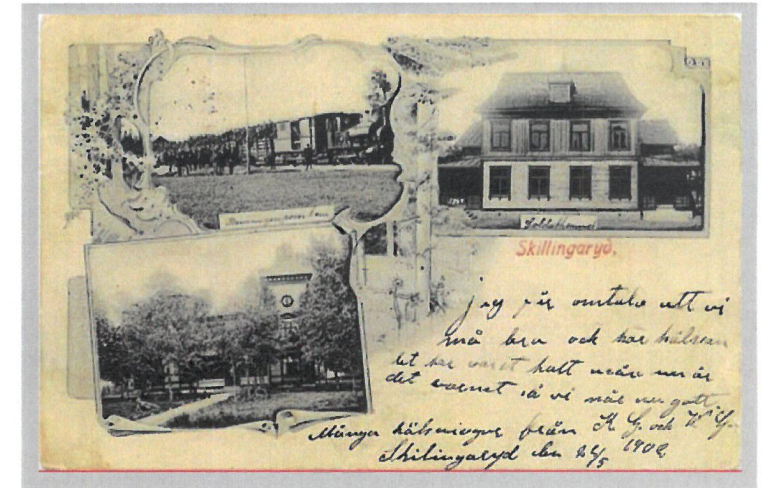 Soldathemmet
Skillingaryd.
jag får omtala att vi
må bra och har hälsan
det har varit kallt men nu är
det varmt så vi når nu gott
Många hälsningar från K. G. och
Skilingaryd den 26/5 1902